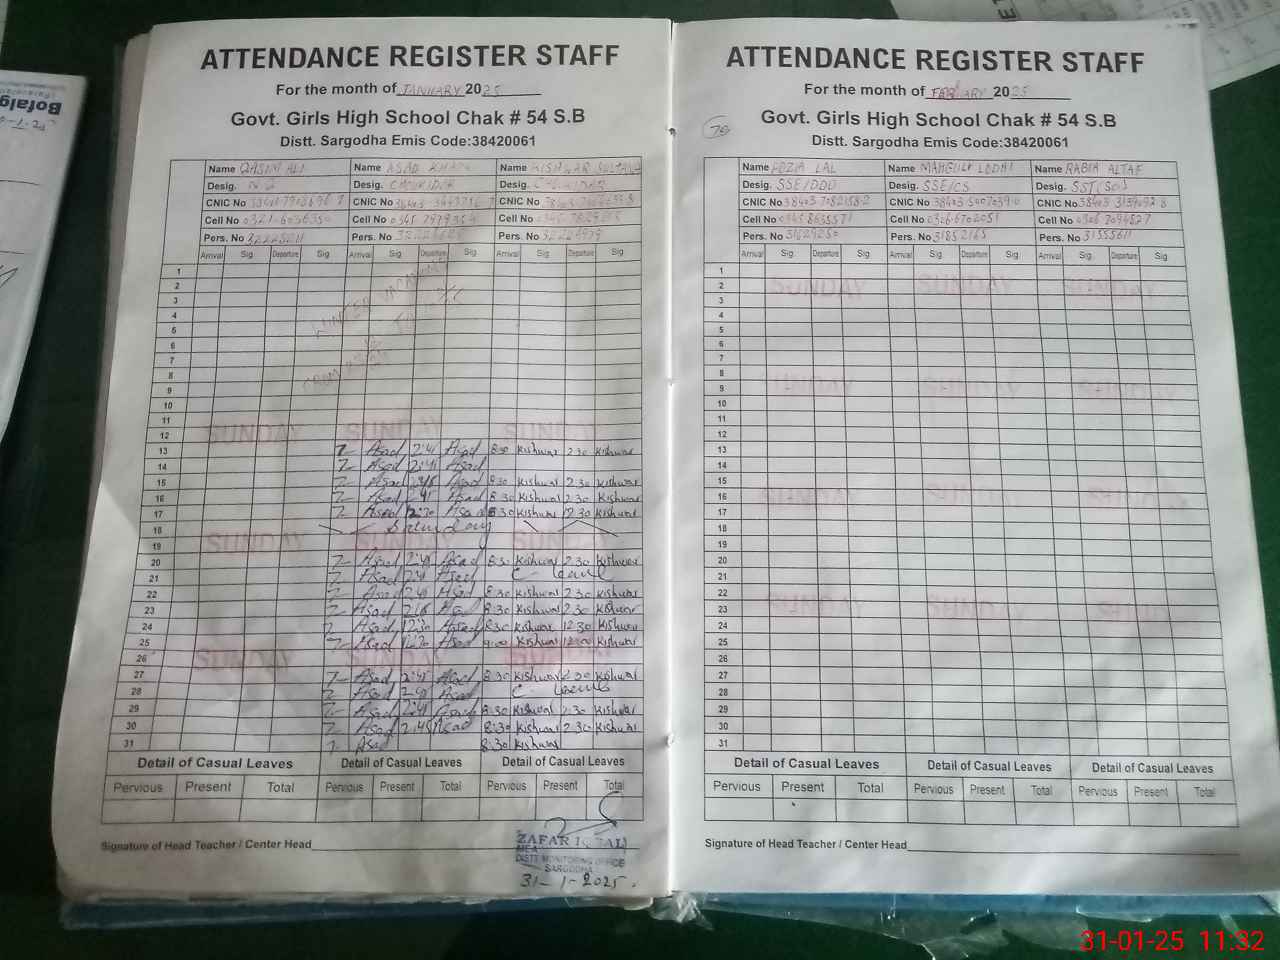 Bofalg
ATTENDANCE REGISTER STAFF
For the month of JANUARY 2025
Govt. Girls High School Chak # 54 S.B
Distt. Sargodha Emis Code:38420061
Name QASIM ALI Name ASAD KHAN Name KISHWAR SULTANA
Desig. N.Q Desig. CHOUKIDAR Desig. CHOUKIDAR
CNIC No CNIC No CNIC No
Cell No 0321-6036350 Cell No Cell No
Pers. No Pers. No Pers. No
Arrival Sig Departure Sig Arrival Sig Departure Sig Arrival Sig Departure Sig
1
2
3
4
5
6
7
8
9
10
11
WINTER VACATION
FROM
TO
12 SUNDAY SUNDAY SUNDAY
13 7- Asad 2:41 Asad 8:30 Kishwar 2:30 Kishwar
14 7- Asad 2:41 Asad
15 7- Asad Asad 8:30 Kishwar 2:30 Kishwar
16 7- Asad 2:41 Asad 8:30 Kishwar 2:30 Kishwar
17 7- Asad 12:30 Asad 8:30 Kishwar 12:30 Kishwar
18 Saturday
19 SUNDAY SUNDAY SUNDAY
20 7- Asad 2:41 Asad 8:30 Kishwar 2:30 Kishwar
21 7- Asad 2:41 Asad C- leave
22 7- Asad 2:41 Asad 8:30 Kishwar 2:30 Kishwar
23 7- Asad Asad 8:30 Kishwar 2:30 Kishwar
24 7- Asad 12:30 Asad 8:30 Kishwar 12:30 Kishwar
25 7- Asad Asad 9:00 Kishwar Kishwar
26 SUNDAY SUNDAY SUNDAY
27 7- Asad 2:41 Asad 8:30 Kishwar 2:30 Kishwar
28 7- Asad 2:41 Asad C- leave
29 7- Asad 2:41 Asad 8:30 Kishwar 2:30 Kishwar
30 7- Asad 2:45 Asad 8:30 Kishwar 2:30 Kishwar
31 7- Asad 8:30 Kishwar
Detail of Casual Leaves Detail of Casual Leaves Detail of Casual Leaves
Pervious Present Total Pervious Present Total Pervious Present Total
Signature of Head Teacher / Center Head
ZAFAR IQBAL
MEA
DISTT. MONITORING OFFICE
SARGODHA
31-1-2025.
ATTENDANCE REGISTER STAFF
For the month of FEBRUARY 2025
Govt. Girls High School Chak # 54 S.B
Distt. Sargodha Emis Code:38420061
Name FOZIA LAL Name MAHGULY LODHI Name RABIA ALTAF
Desig. SSE/DDO Desig. SSE/CS Desig. SST(Sci)
CNIC No CNIC No CNIC No
Cell No 0345 8635571 Cell No 0306-6702051 Cell No 0306 7094827
Pers. No Pers. No 31852165 Pers. No 31555611
Arrival Sig Departure Sig Arrival Sig Departure Sig Arrival Sig Departure Sig
1
2 SUNDAY SUNDAY SUNDAY
3
4
5
6
7
8
9 SUNDAY SUNDAY SUNDAY
10
11
12
13
14
15
16 SUNDAY SUNDAY SUNDAY
17
18
19
20
21
22
23 SUNDAY SUNDAY SUNDAY
24
25
26
27
28
29
30
31
Detail of Casual Leaves Detail of Casual Leaves Detail of Casual Leaves
Pervious Present Total Pervious Present Total Pervious Present Total
Signature of Head Teacher / Center Head
31-01-25 11:32